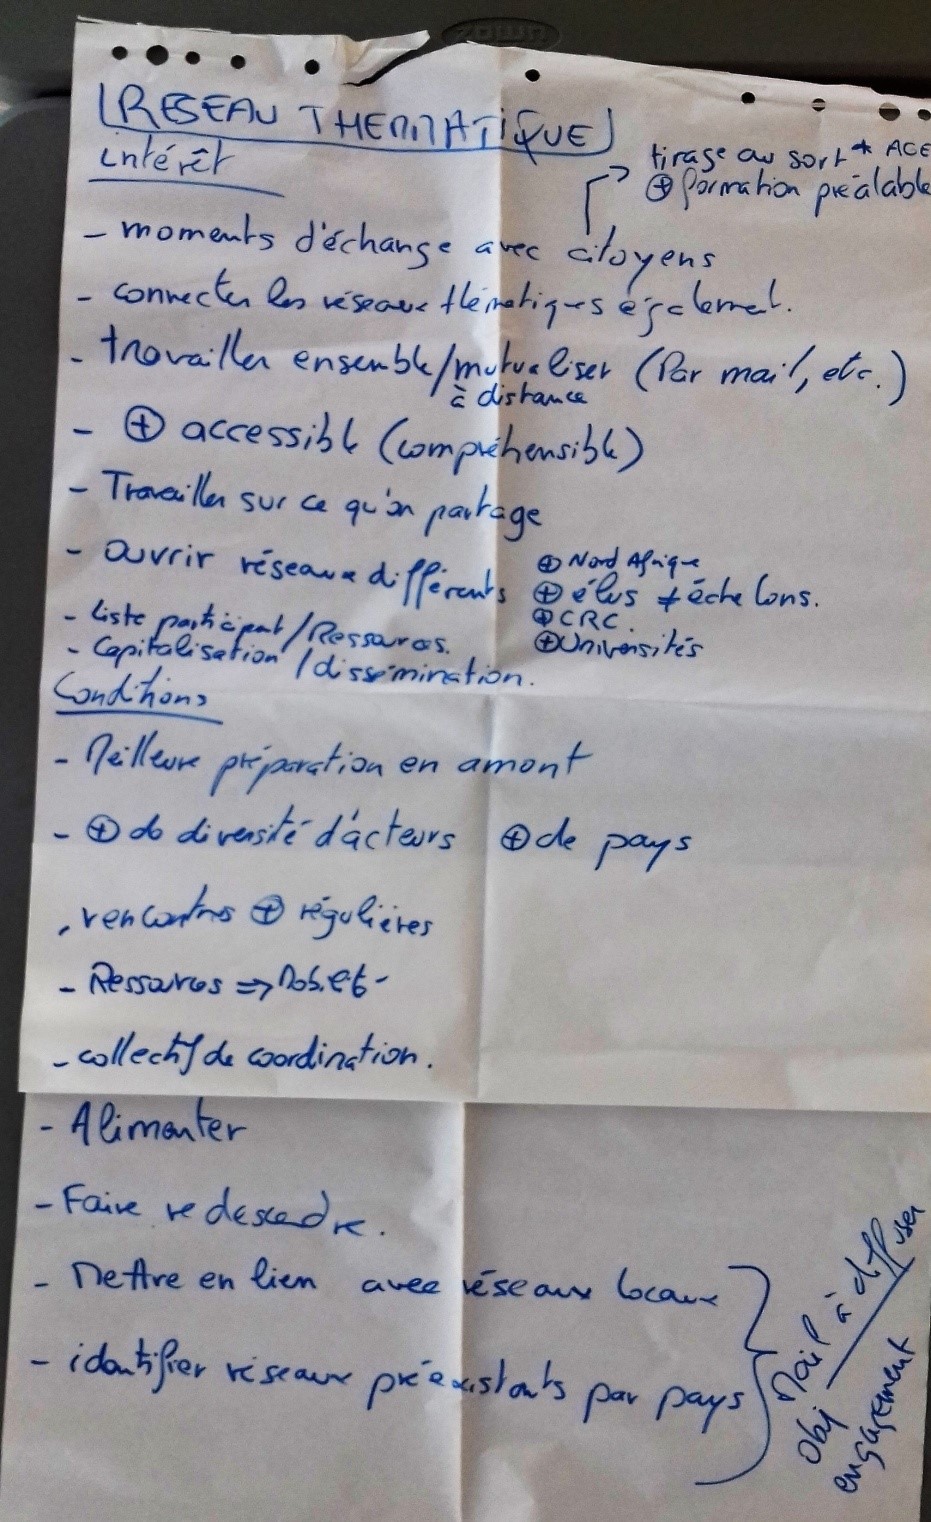 RESEAU THEMATIQUE
intérêt
tirage au sort * ACE
⊕ formation préalable
- moments d'échange avec citoyens
- connecter les réseaux thématiques également.
- travailler ensemble/mutualiser (Par mail, etc.)
à distance
- ⊕ accessible (compréhensible)
- Travailler sur ce qu'on partage
- ouvrir réseaux différents
⊕ Nord Afrique
⊕ élus ≠ échelons.
⊕ CRC.
⊕ Universités
- Liste participant/Ressources.
- Capitalisation/dissémination.
Conditions
- Meilleure préparation en amont
- ⊕ de diversité d'acteurs ⊕ de pays
- rencontres ⊕ régulières
- Ressources ⇒
- collectif de coordination.
- Alimenter
- Faire redescendre.
- Mettre en lien avec réseaux locaux
- identifier réseaux préexistants par pays
Mail à diffuser
obj engagement